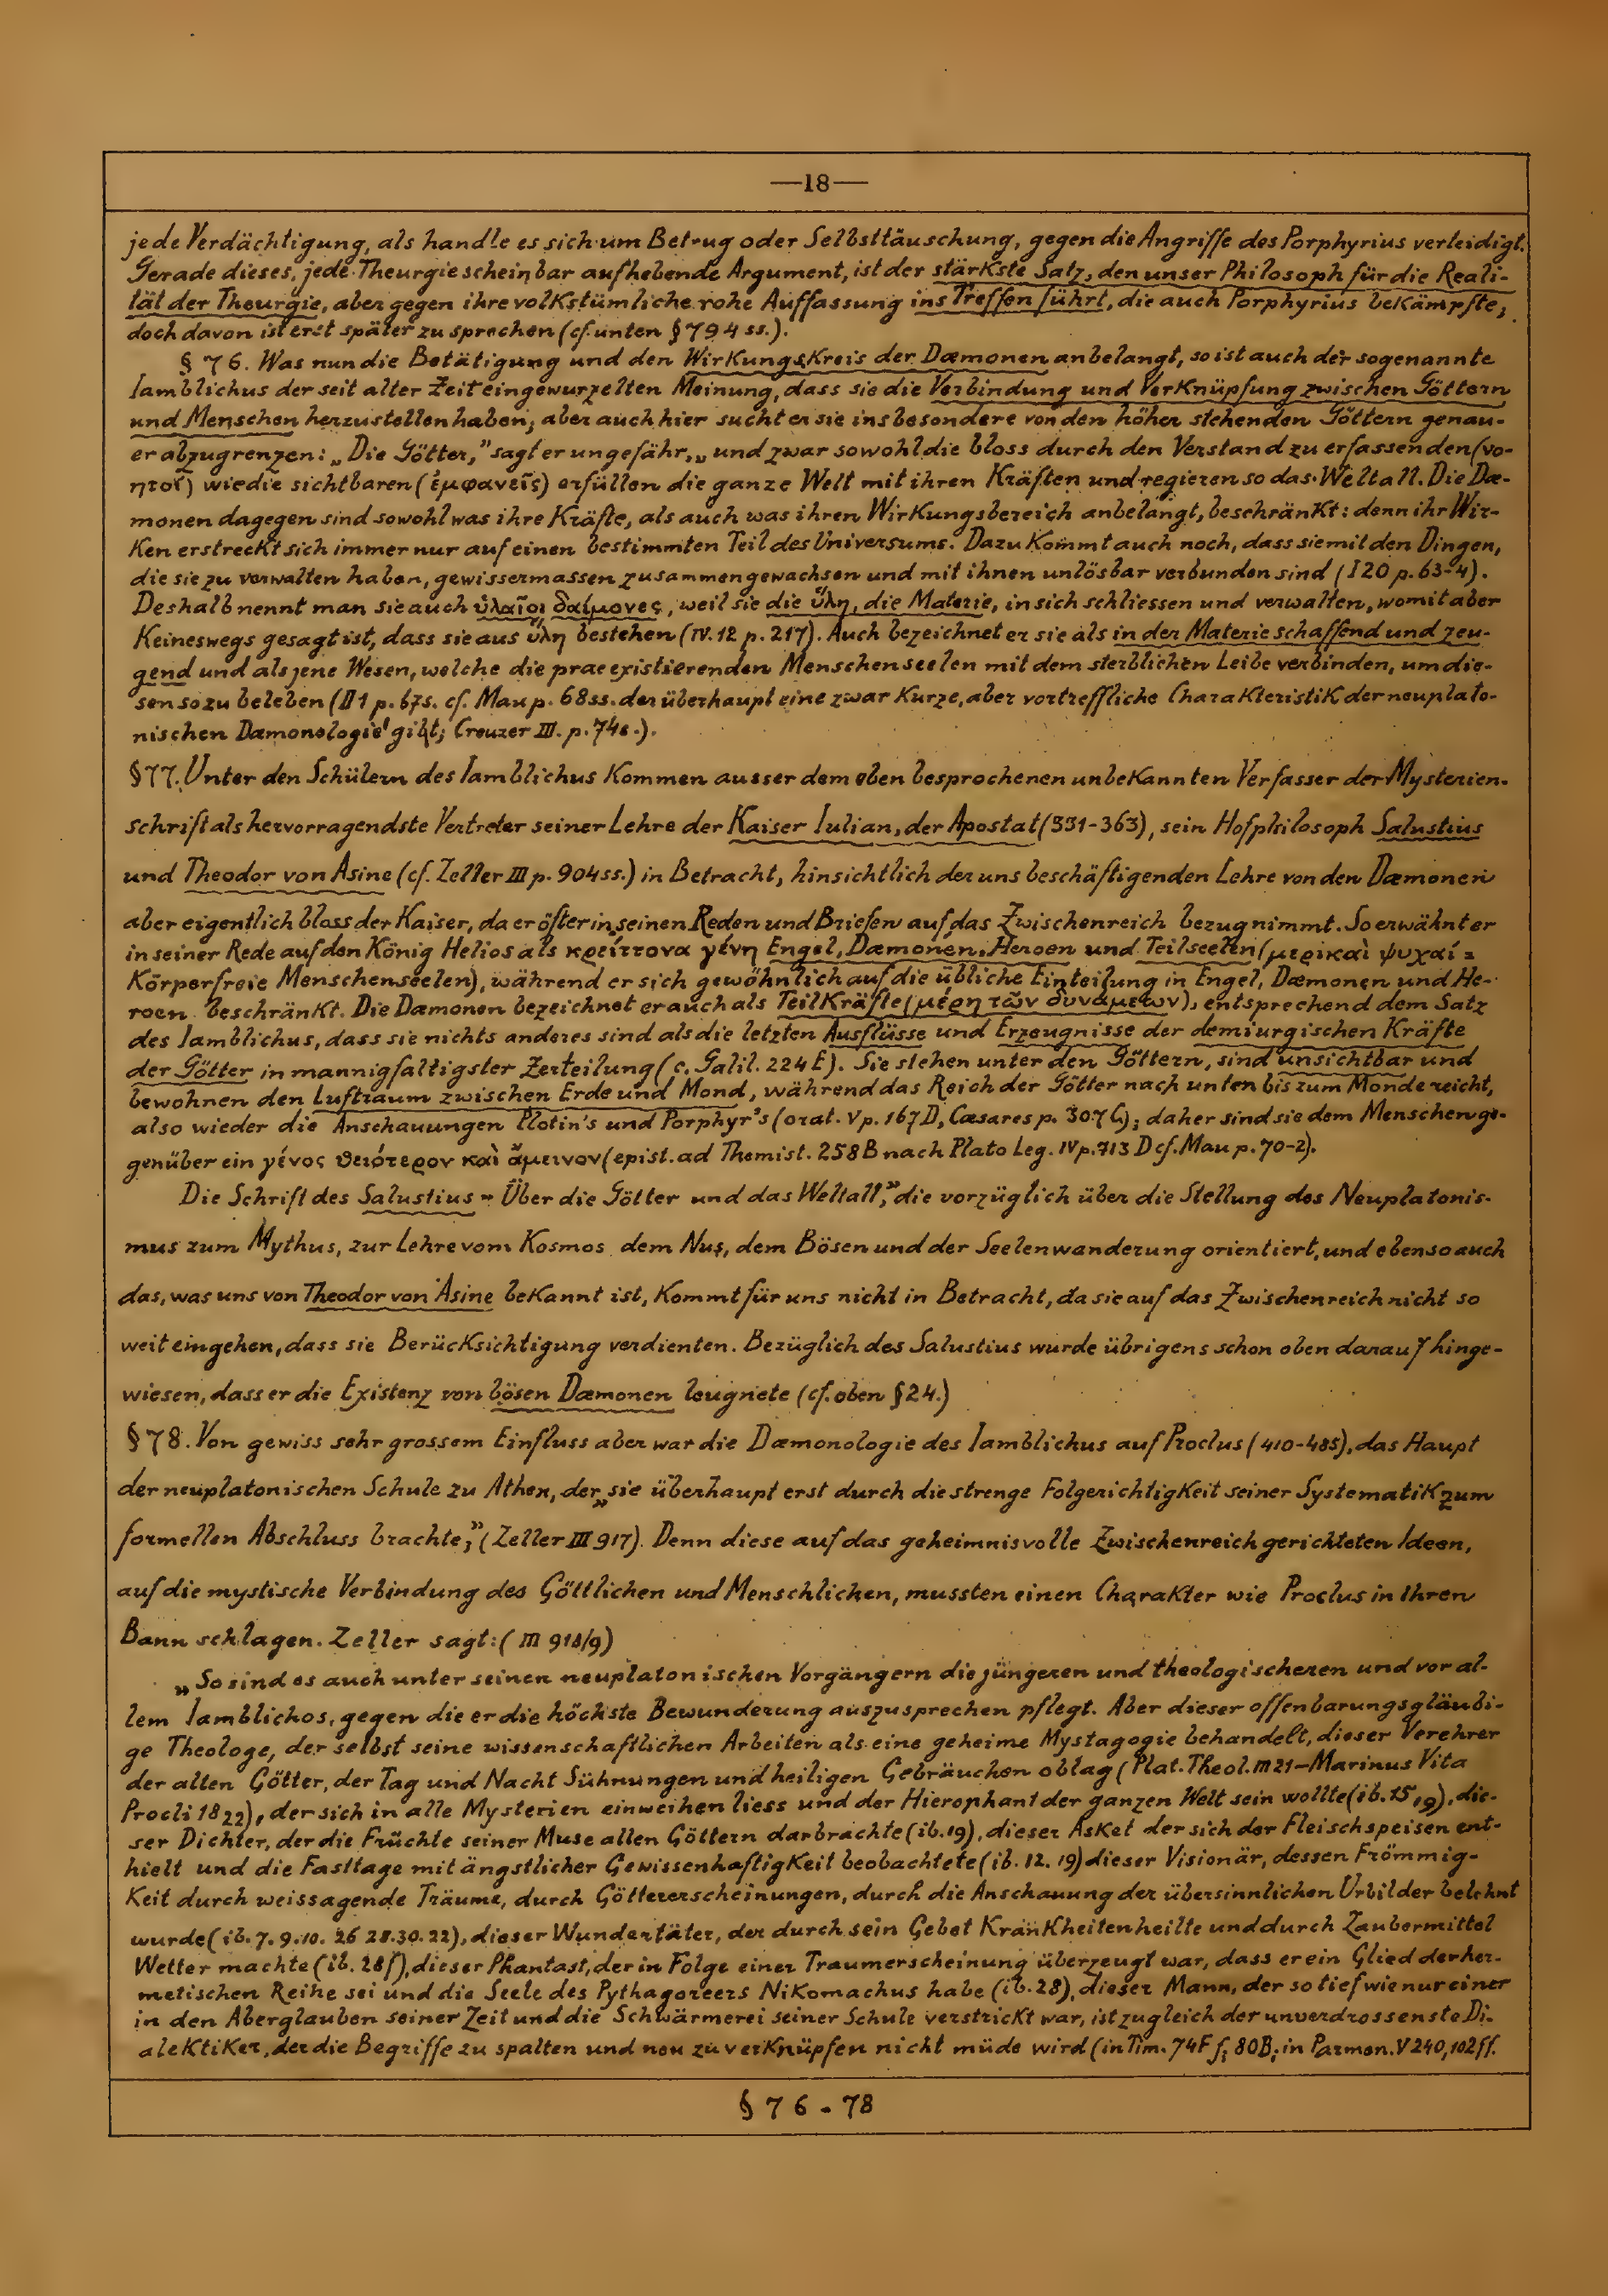 —18—
jede Verdächtigung, als handle es sich um Betrug oder Selbsttäuschung, gegen die Angriffe des Porphyrius verteidigt.
Gerade dieses, jede Theurgie scheinbar aufhebende Argument, ist der stärkste Satz, den unser Philosoph für die Reali-
tät der Theurgie, aber gegen ihre volkstümliche rohe Auffassung ins Treffen führt, die auch Porphyrius bekämpfte,
doch davon ist erst später zu sprechen (cf. unten § 794 ss.).
§ 76. Was nun die Betätigung und den Wirkungskreis der Dæmonen anbelangt, so ist auch der sogenannte
Iamblichus der seit alter Zeit eingewurzelten Meinung, dass sie die Verbindung und Verknüpfung zwischen Göttern
und Menschen herzustellen haben; aber auch hier sucht er sie insbesondere von den höher stehenden Göttern genau-
er abzugrenzen: „Die Götter,” sagt er ungefähr, „und zwar sowohl die bloss durch den Verstand zu erfassenden (νο-
ητοί) wie die sichtbaren (ἐμφανεῖς) erfüllen die ganze Welt mit ihren Kräften und regieren so das Weltall. Die Dæ-
monen dagegen sind sowohl was ihre Kräfte, als auch was ihren Wirkungsbereich anbelangt, beschränkt: denn ihr Wir-
ken erstreckt sich immer nur auf einen bestimmten Teil des Universums. Dazu kommt auch noch, dass sie mit den Dingen,
die sie zu verwalten haben, gewissermassen zusammengewachsen und mit ihnen unlösbar verbunden sind (I 20 p. 63-4).
Deshalb nennt man sie auch ὑλαῖοι δαίμονες, weil sie die ὕλη, die Materie, in sich schliessen und verwalten, womit aber
keineswegs gesagt ist, dass sie aus ὕλη bestehen (IV. 12 p. 217). Auch bezeichnet er sie als in der Materie schaffend und zeu-
gend und als jene Wesen, welche die praeexistierenden Menschenseelen mit dem sterblichen Leibe verbinden, um die-
sen so zu beleben (II 1 p. 67s. cf. Mau p. 68ss. der überhaupt eine zwar kurze, aber vortreffliche Charakteristik der neuplato-
nischen Dæmonologie gibt; Creuzer III. p. 74s.).
§ 77. Unter den Schülern des Iamblichus kommen ausser dem eben besprochenen unbekannten Verfasser der Mysterien-
schrift als hervorragendste Vertreter seiner Lehre der Kaiser Iulian, der Apostat (331-363), sein Hofphilosoph Salustius
und Theodor von Asine (cf. Zeller III p. 904ss.) in Betracht, hinsichtlich der uns beschäftigenden Lehre von den Dæmonen
aber eigentlich bloss der Kaiser, da er öfter in seinen Reden und Briefen auf das Zwischenreich bezug nimmt. So erwähnt er
in seiner Rede auf den König Helios als κρείττονα γένη Engel, Dæmonen, Heroen und Teilseelen (μερικαὶ ψυχαί =
Körperfreie Menschenseelen), während er sich gewöhnlich auf die übliche Einteilung in Engel, Dæmonen und He-
roen beschränkt. Die Dæmonen bezeichnet er auch als Teilkräfte (μέρη τῶν δυνάμεων), entsprechend dem Satz
des Iamblichus, dass sie nichts anderes sind als die letzten Ausflüsse und Erzeugnisse der demiurgischen Kräfte
der Götter in mannigfaltigster Zerteilung (c. Galil. 224 E). Sie stehen unter den Göttern, sind unsichtbar und
bewohnen den Luftraum zwischen Erde und Mond, während das Reich der Götter nach unten bis zum Monde reicht,
also wieder die Anschauungen Plotin's und Porphyr's (orat. V p. 167 D, Cæsares p. 307 C); daher sind sie dem Menschen ge-
genüber ein γένος θειότερον καὶ ἄμεινον (epist. ad Themist. 258 B nach Plato Leg. IV p. 713 D cf. Mau p. 70-2).
Die Schrift des Salustius „Über die Götter und das Weltall,” die vorzüglich über die Stellung des Neuplatonis-
mus zum Mythus, zur Lehre vom Kosmos, dem Nus, dem Bösen und der Seelenwanderung orientiert, und ebenso auch
das, was uns von Theodor von Asine bekannt ist, kommt für uns nicht in Betracht, da sie auf das Zwischenreich nicht so
weit eingehen, dass sie Berücksichtigung verdienten. Bezüglich des Salustius wurde übrigens schon oben darauf hinge-
wiesen, dass er die Existenz von bösen Dæmonen leugnete (cf. oben § 24.)
§ 78. Von gewiss sehr grossem Einfluss aber war die Dæmonologie des Iamblichus auf Proclus (410-485), das Haupt
der neuplatonischen Schule zu Athen, der „sie überhaupt erst durch die strenge Folgerichtigkeit seiner Systematik zum
formellen Abschluss brachte,” (Zeller III 917). Denn diese auf das geheimnisvolle Zwischenreich gerichteten Ideen,
auf die mystische Verbindung des Göttlichen und Menschlichen, mussten einen Charakter wie Proclus in Ihren
Bann schlagen. Zeller sagt: (III 918/9)
„So sind es auch unter seinen neuplatonischen Vorgängern die jüngeren und theologischeren und vor al-
lem Iamblichos, gegen die er die höchste Bewunderung auszusprechen pflegt. Aber dieser offenbarungsgläubi-
ge Theologe, der selbst seine wissenschaftlichen Arbeiten als eine geheime Mystagogie behandelt, dieser Verehrer
der alten Götter, der Tag und Nacht Sühnungen und heiligen Gebräuchen oblag (Plat. Theol. III 21—Marinus Vita
Procli 18 22), der sich in alle Mysterien einweihen liess und der Hierophant der ganzen Welt sein wollte (ib. 15, 19), die-
ser Dichter, der die Früchte seiner Muse allen Göttern darbrachte (ib. 19), dieser Asket der sich der Fleischspeisen ent-
hielt und die Fasttage mit ängstlicher Gewissenhaftigkeit beobachtete (ib. 12. 19) dieser Visionär, dessen Frömmig-
keit durch weissagende Träume, durch Göttererscheinungen, durch die Anschauung der übersinnlichen Urbilder belohnt
wurde (ib. 7. 9. 10. 26 28. 30. 22), dieser Wundertäter, der durch sein Gebet Krankheiten heilte und durch Zaubermittel
Wetter machte (ib. 28f), dieser Phantast, der in Folge einer Traumerscheinung überzeugt war, dass er ein Glied der her-
metischen Reihe sei und die Seele des Pythagoreers Nikomachus habe (ib. 28), dieser Mann, der so tief wie nur einer
in den Aberglauben seiner Zeit und die Schwärmerei seiner Schule verstrickt war, ist zugleich der unverdrossenste Di-
alektiker, der die Begriffe zu spalten und neu zu verknüpfen nicht müde wird (in Tim. 74F f, 80B; in Parmen. V 240, 102ff.
§ 76 - 78